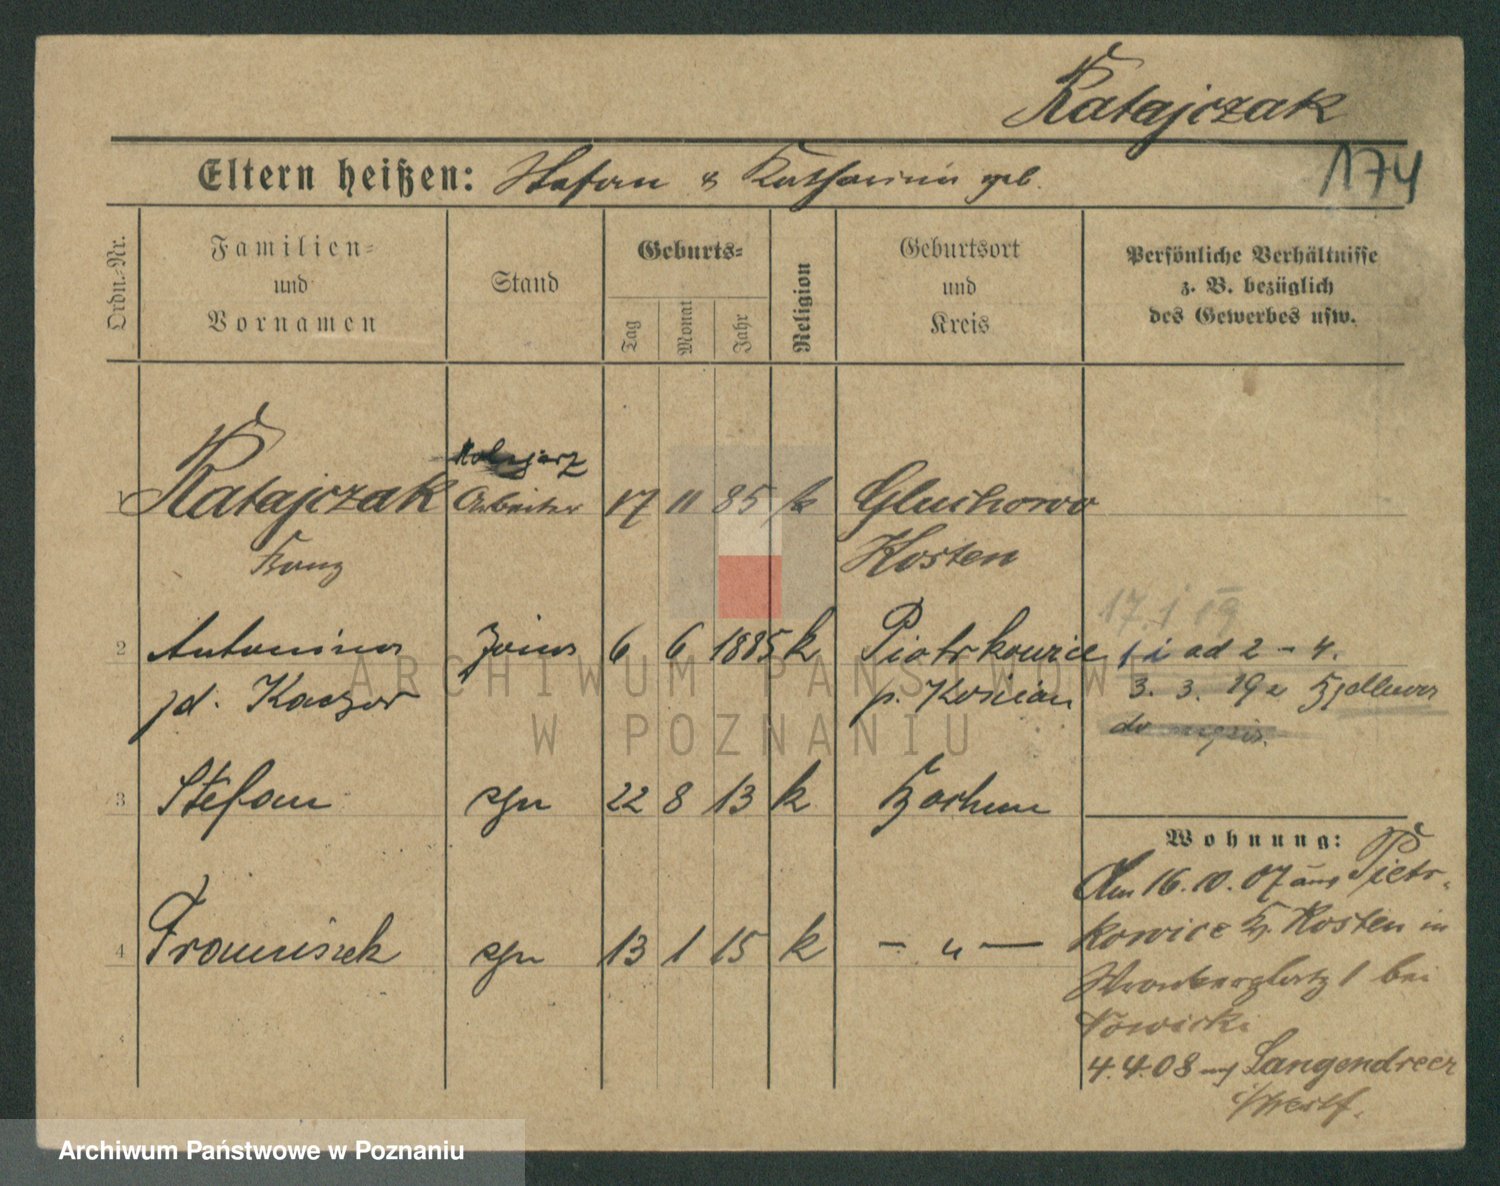 Ratajczak
174
Eltern heißen: Stefan & Katharina geb.
Ordn.-Nr.
Familien-
und
Vornamen
Stand
Geburts-
Tag
Monat
Jahr
Religion
Geburtsort
und
Kreis
Persönliche Verhältnisse
z. B. bezüglich
des Gewerbes usw.
1 Ratajczak Arbeiter 17 11 85 k Gluchowo
Franz Kosten
17. 1 19
2 Antonina żona 6 6 1885 k Piotrkowice 1 i ad 2 - 4.
zd. Kaczor p. Kościan 3. 3. 19 z
do
3 Stefan syn 22 8 13 k Bochum
Wohnung:
Am 16.10.07 aus Pietr-
4 Franciszek syn 13 1 15 k — „ — kowice Kr. Kosten in
Wronkerplatz 1 bei
Nowicki
4.4.08 auf Langendreer
i/Westf.
ARCHIWUM PAŃSTWOWE
W POZNANIU
Archiwum Państwowe w Poznaniu